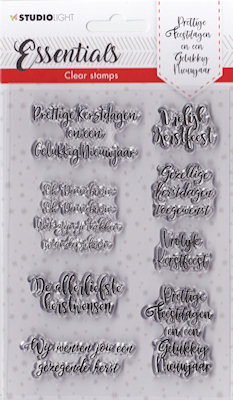 STUDIOLIGHT
Essentials
Clear stamps
Prettige
Feestdagen
en een
Gelukkig
Nieuwjaar
Prettige Kerstdagen
en een
Gelukkig Nieuwjaar
Vrolijk
Kerstfeest
Gezellige
kerstdagen
toegewenst
Vrolijk
Kerstfeest
De allerliefste
kerstwensen
Prettige
Feestdagen
en een
Gelukkig
Nieuwjaar
Wij wensen jou een
gezegende kerst